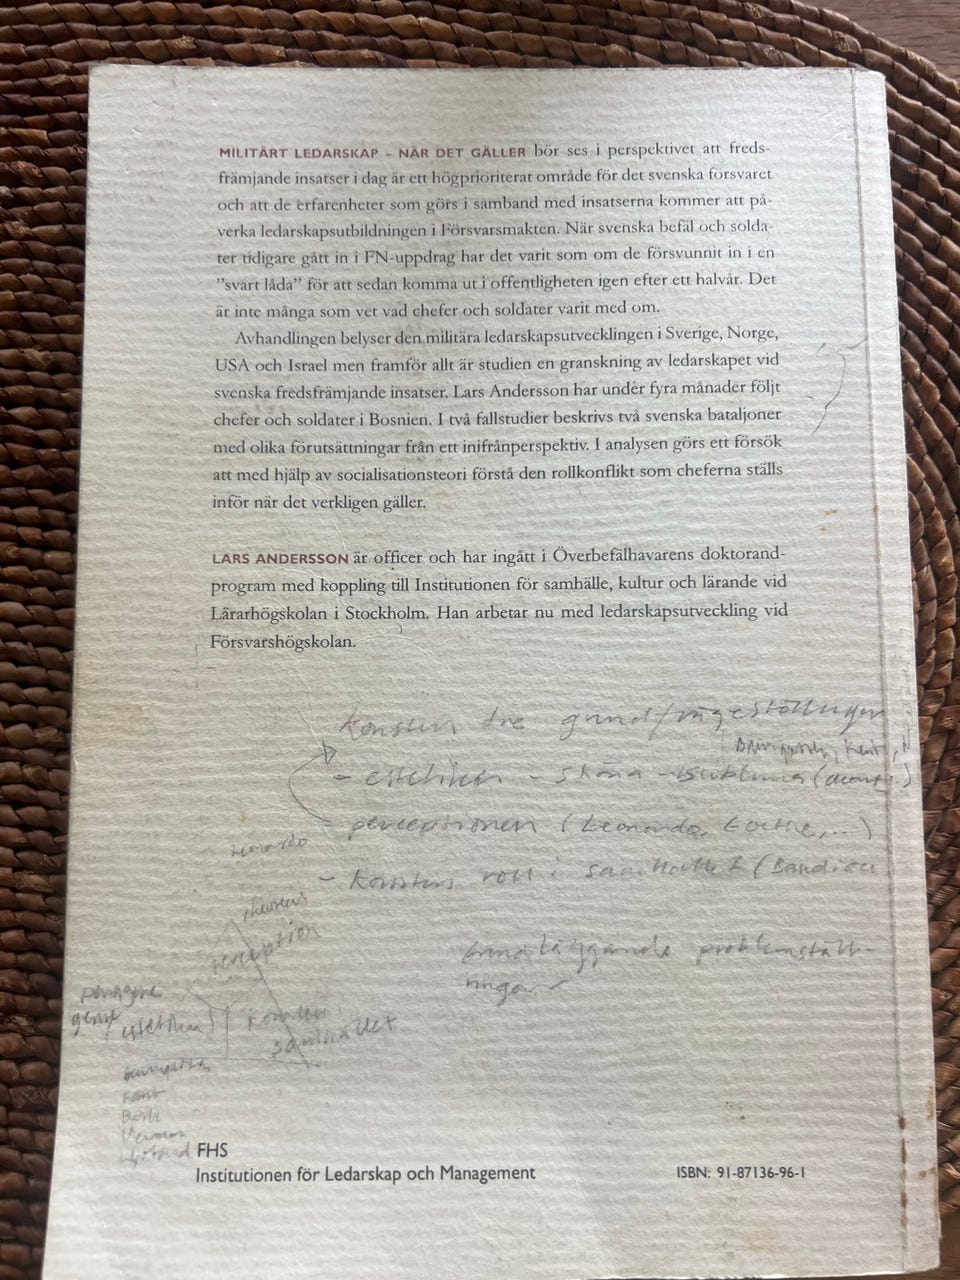 MILITÄRT LEDARSKAP – NÄR DET GÄLLER bör ses i perspektivet att freds-
främjande insatser i dag är ett högprioriterat område för det svenska försvaret
och att de erfarenheter som görs i samband med insatserna kommer att på-
verka ledarskapsutbildningen i Försvarsmakten. När svenska befäl och solda-
ter tidigare gått in i FN-uppdrag har det varit som om de försvunnit in i en
”svart låda” för att sedan komma ut i offentligheten igen efter ett halvår. Det
är inte många som vet vad chefer och soldater varit med om.
Avhandlingen belyser den militära ledarskapsutvecklingen i Sverige, Norge,
USA och Israel men framför allt är studien en granskning av ledarskapet vid
svenska fredsfrämjande insatser. Lars Andersson har under fyra månader följt
chefer och soldater i Bosnien. I två fallstudier beskrivs två svenska bataljoner
med olika förutsättningar från ett inifrånperspektiv. I analysen görs ett försök
att med hjälp av socialisationsteori förstå den rollkonflikt som cheferna ställs
inför när det verkligen gäller.
LARS ANDERSSON är officer och har ingått i Överbefälhavarens doktorand-
program med koppling till Institutionen för samhälle, kultur och lärande vid
Lärarhögskolan i Stockholm. Han arbetar nu med ledarskapsutveckling vid
Försvarshögskolan.
tre grundfrågeställningar
Kant,
- estetiken - sköna -
perceptionen (Leonardo, Goethe, ...)
- Konstens roll i samhället (
Leonardo
perception
Grundläggande problemställ-
ningar
estetiken
konsten
samhället
Kant
FHS
Institutionen för Ledarskap och Management
ISBN: 91-87136-96-1